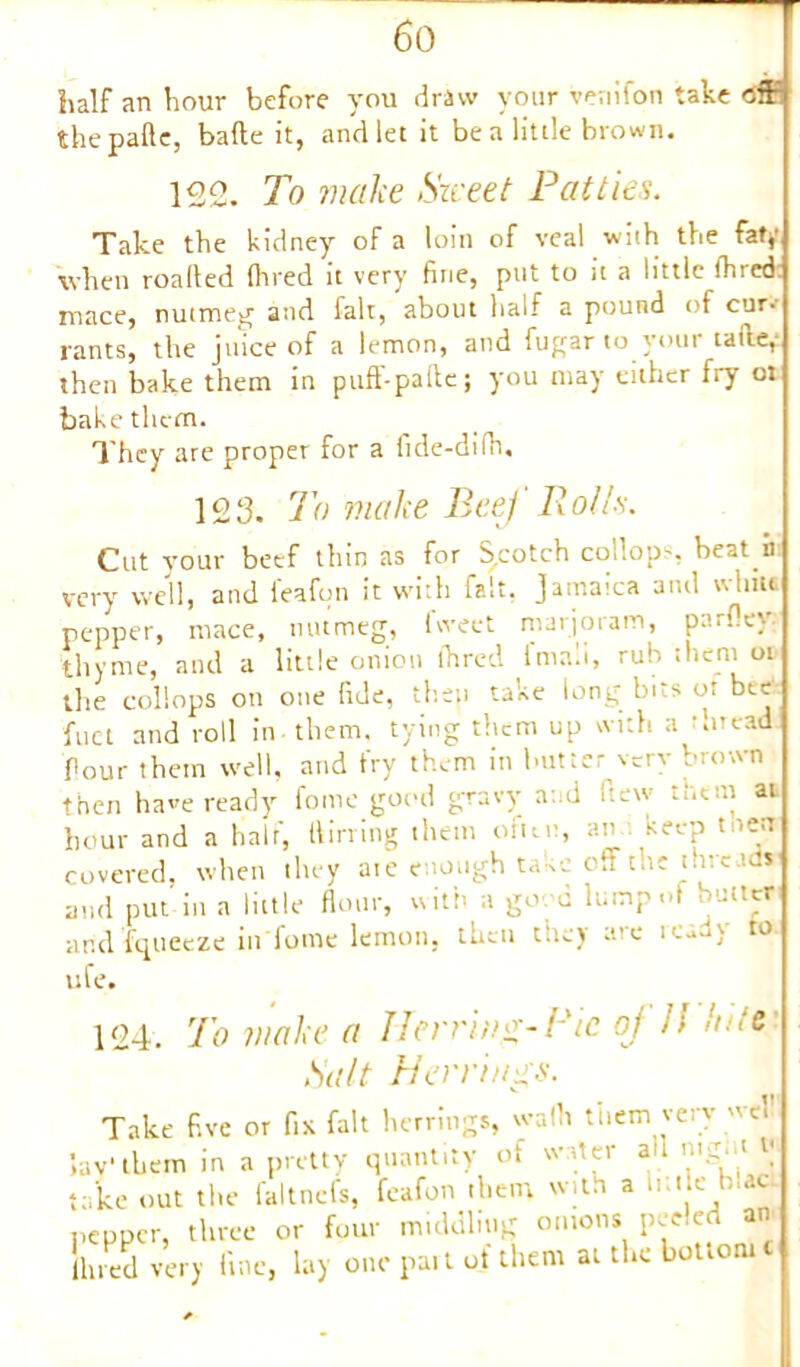 60
half an hour before you draw your veniſon take off
the paſte, baſte it, and let it be a little brown.
122. To make Sweet Patties.
Take the kidney of a loin of veal with the fat,
when roaſted ſhred it very fine, put to it a little ſhred
mace, nutmeg and ſalt, about half a pound of cur-
rants, the juice of a lemon, and ſugar to your taſte,
then bake them in puff-paſte; you may either fry or
bake them.
They are proper for a ſide-diſh.
123. To make Beef Rolls.
Cut your beef thin as for Scotch collops, beat it
very well, and ſeaſon it with ſalt, Jamaica and white
pepper, mace, nutmeg, ſweet marjoram, parſley,
thyme, and a little onion ſhred ſmall, rub them on
the collops on one ſide, then take long bits of bee
ſuet and roll in them, tying them up with a thread
flour them well, and fry them in butter very brown
then have ready ſome good gravy and ſtew them an
hour and a half, ſtirring them often, and keep them
covered, when they are enough take off the threads
and put in a little flour, with a good lump of butter
and ſqueeze in ſome lemon, then they are ready to
uſe.
124. To make a Herring-Pie of White
Salt Herrings.
Take five or ſix ſalt herrings, waſh them very wel
lay them in a pretty quantity of water all night
take out the ſaltneſs, ſeaſon them with a little blac
pepper, three or four middling onions peeled an
ſhred very fine, lay one part of them at the bottom